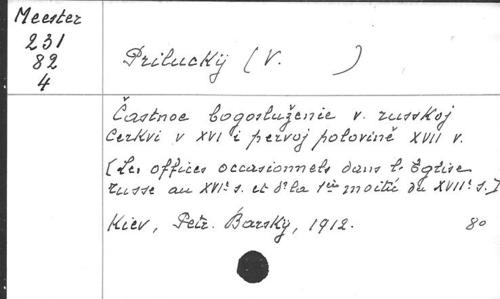 Meester
231
82
4
Priluckÿ (V. )
Častnoe bogosluženie v. russkoj
cerkvi v XVI i pervoj polovině XVII v.
[Les offices occasionnels dans l'Eglise
russe au XVIe s. et de la 1ère moitié du XVIIe s.]
Kiev, Petr. Barskÿ, 1912. 8o